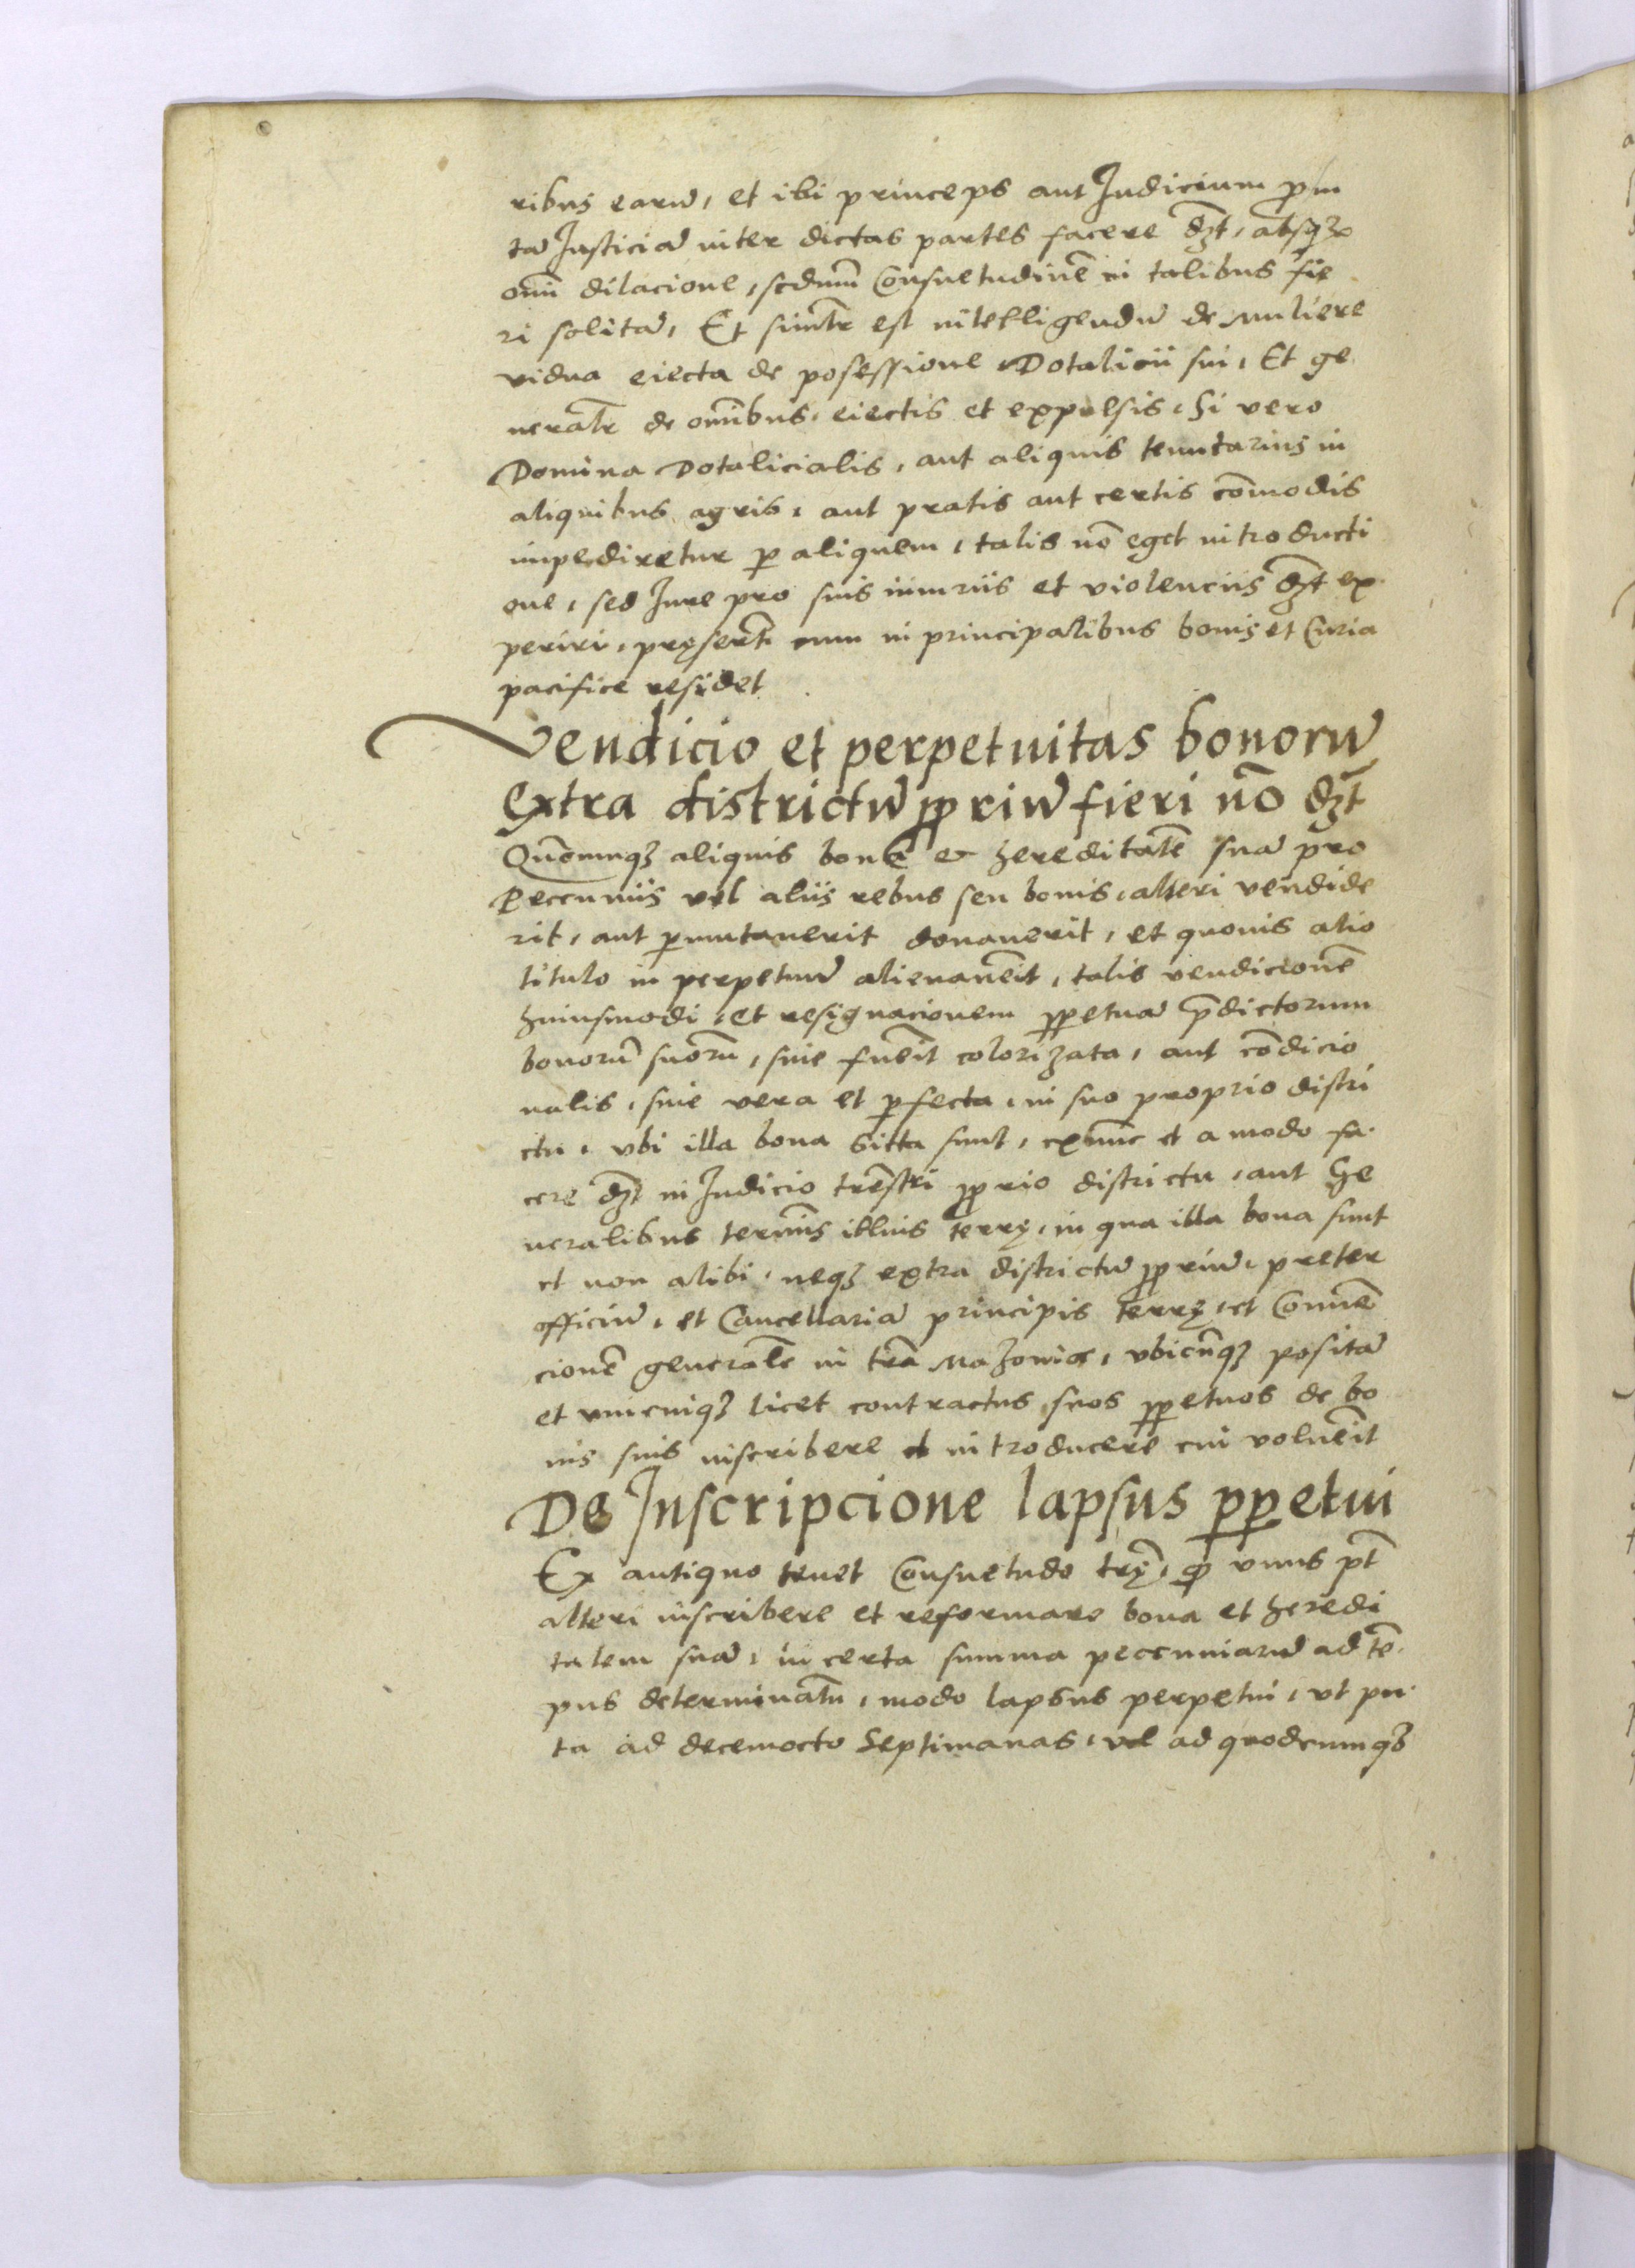 ribus earū, et ibi princeps aut Judicium ꝓm
tā Justiciā inter dictas partes facere dꝫt, absqꝫ
omī dilacione, scdum Consuetudinē in talibus fie
ri solitā, Et simĺr est intelligendū de muliere
vidua eiecta de posessione Dotalicii sui, Et ge
nerałr de omībus, eiectis et expulsis, Si vero
Domina Dotalicialis, aut aliquis tenutarius in
aliquibus agris, aut pratis aut certis cōmodis
impediretur ꝑ aliquem, talis nō eget introducti
one, sed Jure pro suis iniuriis et violenciis dꝫt ex
periri, pręsert̃ cum in principalibus bonis et Curia
pacifice residet
Vendicio et perpetuitas bonorū
Extra districtū ꝓpriū fieri nō dꝫt
Quōcunqꝫ aliquis bona et hereditatē suā pro
Peccuniis vel aliis rebus seu bonis, alteri vendide
rit, aut ꝑmutauerit donauerit, et quouis alio
titulo in perpetuū alienauēit, talis vendicionē
huiusmodi, et resignacionem ꝑpetuā p̄dictorum
bonorū suorū, siue fuēit colorizata, aut cōdicio
nalis, siue vera et ꝑfecta, in suo proprio distri
ctu, vbi illa bona sitta sunt, exnunc et a modo fa
cere dꝫt in Judicio trēstri ꝓprio districtu, aut Ge
neralibus termīs illius terrę, in qua illa bona sunt
et non alibi, neqꝫ extra districtū ꝓpriū, preter
officiū, et Cancellariā principis terrę, et Conuē
cionē generalē in tr̄a Mazouię, vbicūqꝫ positā
et vnicuiqꝫ licet contractus suos ꝑpetuos de bo
nis suis inscribere et introducere cui voluēit
De Inscripcione lapsus ꝑpetui
Ex antiquo tenet Consuetudo tr̄ę, ꝙ vnus pt̄
alteri inscribere et reformare bona et heredi
tatem suā, in certa summa peccuniarū ad tē
pus determinatū, modo lapsus perpetui, vt pu
ta ad decemocto Septimanas, vel ad quodcumqꝫ